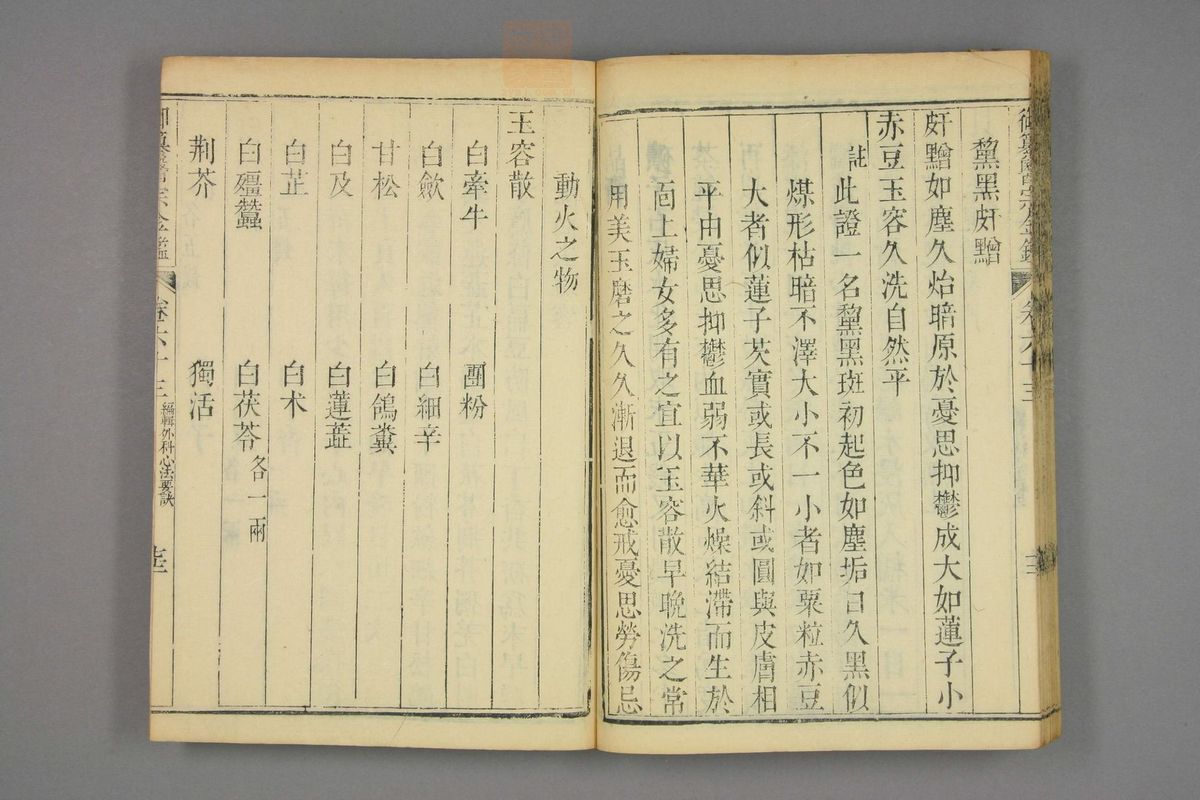 御纂醫宗金鑑 卷六十三
黧黑皯䵴
皯䵴如塵久炲暗原於憂思抑鬱成大如蓮子小
赤豆玉容久洗自然平
註此證一名黧黑斑初起色如塵垢日久黑似
煤形枯暗不澤大小不一小者如粟粒赤豆
大者似蓮子芡實或長或斜或圓與皮膚相
平由憂思抑鬱血弱不華火燥結滯而生於
面上婦女多有之宜以玉容散早晚洗之常
用美玉磨之久久漸退而愈戒憂思勞傷忌
動火之物
玉容散
白牽牛 團粉
白歛 白細辛
甘松 白鴿糞
白及 白蓮蕋
白芷 白术
白殭蠶 白茯苓各一兩
荆芥 獨活
御纂醫宗金鑑 卷六十三 編輯外科心法要訣